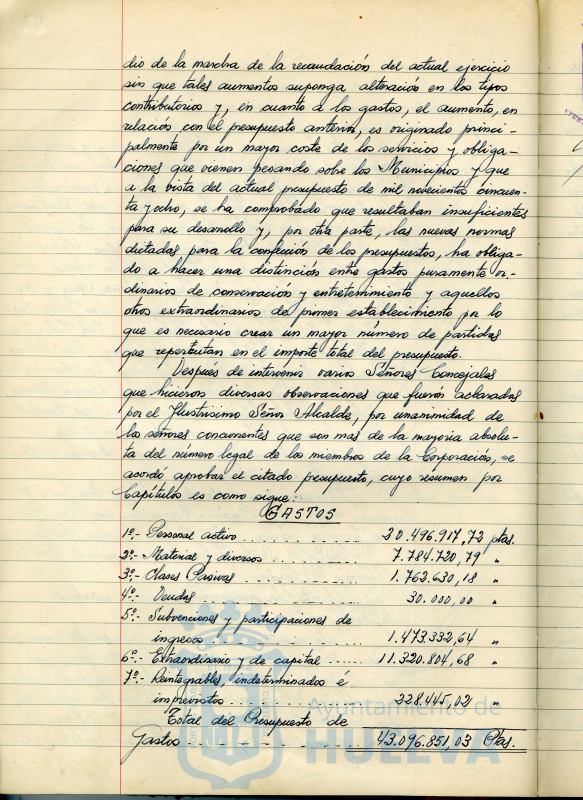 dio de la marcha de la recaudación del actual ejercicio
sin que tales aumentos suponga alteración en los tipos
contributorios y, en cuanto a los gastos, el aumento, en
relación con el presupuesto anterior, es originado princi-
palmente por un mayor coste de los servicios y obliga-
ciones que vienen pesando sobre los Municipios y que
a la vista del actual presupuesto de mil novecientos cincuen-
ta y ocho, se ha comprobado que resultaban insuficientes
para su desarrollo y, por otra parte, las nuevas normas
dictadas para la confección de los presupuestos, ha obliga-
do a hacer una distinción entre gastos puramente or-
dinarios de conservación y entretenimiento y aquellos
otros extraordinarios de primer establecimiento por lo
que es necesario crear un mayor número de partidas
que repercutan en el importe total del presupuesto.
Después de intervenir varios Señores Concejales
que hicieron diversas observaciones que fueron aclaradas
por el Ilustrisimo Señor Alcalde, por unanimidad de
los señores concurrentes que son mas de la mayoria absolu-
ta del número legal de los miembros de la Corporación, se
acordó aprobar el citado presupuesto, cuyo resumen por
Capítulos es como sigue:
GASTOS
1º.- Personal activo 20.496.917,72 ptas.
2º.- Material y diversos 7.784.720,79 "
3º.- Clases Pasivas 1.762.630,18 "
4º.- Deudas 30.000,00 "
5º.- Subvenciones y participaciones de
ingresos 1.473.332,64 "
6º.- Extraordinario y de capital 11.320.804,68 "
7º.- Reintegrables, indeterminados é
imprevistos 228.445,02 "
Total del Presupuesto de
Gastos 43.096.851,03 Ptas.
Ayuntamiento de
HUELVA